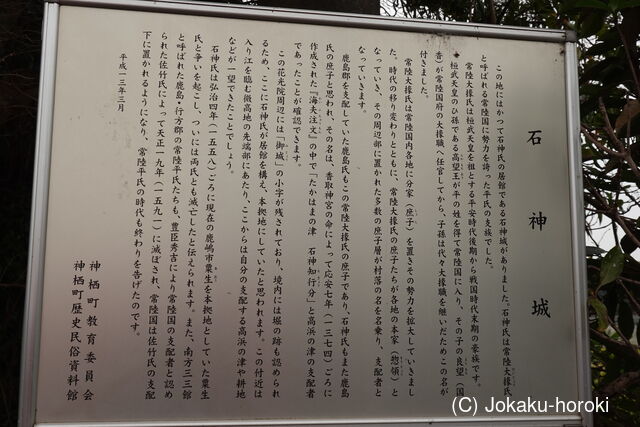 石神城
この地にはかつて石神氏の居館である石神城がありました。石神氏は常陸大掾氏
と呼ばれる常陸国に勢力を誇った平氏の支族でした。
常陸大掾氏は桓武天皇を祖とする平安時代後期から戦国時代末期の豪族です。
桓武天皇のひ孫である高望王が平の姓を得て常陸国に入り、その子の良望（国
香）が常陸国府の大掾職へ任官してから、子孫は代々大掾職を継いだためこの名が
付きました。
常陸大掾氏は常陸国内各地に分家（庶子）を置きその勢力を拡大していきまし
た。時代の移り変わりとともに、常陸大掾氏の庶子たちが各地の本家（惣領）と
なっていき、その周辺部に置かれた多数の庶子層が村落の名を名乗り、支配者と
なっていきます。
鹿島郡を支配していた鹿島氏もこの常陸大掾氏の庶子であり、石神氏もまた鹿島
氏の庶子と思われ、その名は、香取神宮の命によって応安七年（一三七四）ごろに
作成された『海夫注文』の中で「たかはまの津　石神知行分」と高浜の津の支配者
であったことが確認できます。
この花光院周辺には「御城」の小字が残されており、境内には堀の跡も認められ
るため、ここに石神氏が居館を構え、本拠地にしていたと思われます。この付近は
入り江を臨む微高地の先端部にあたり、ここからは自分の支配する高浜の津や耕地
などが一望できたことでしょう。
石神氏は弘治四年（一五五八）ごろに現在の鹿嶋市粟生を本拠地としていた粟生
氏と争いを起こし、ついには両氏とも滅亡したと伝えられます。また、南方三三館
と呼ばれた鹿島・行方郡の常陸平氏たちも、豊臣秀吉により常陸国の支配者と認め
られた佐竹氏によって天正一九年（一五九一）に滅ぼされ、常陸国は佐竹氏の支配
下に置かれるようになり、常陸平氏の時代も終わりを告げたのです。
平成一三年三月
神栖町教育委員会
神栖町歴史民俗資料館
(C) Jokaku-horoki